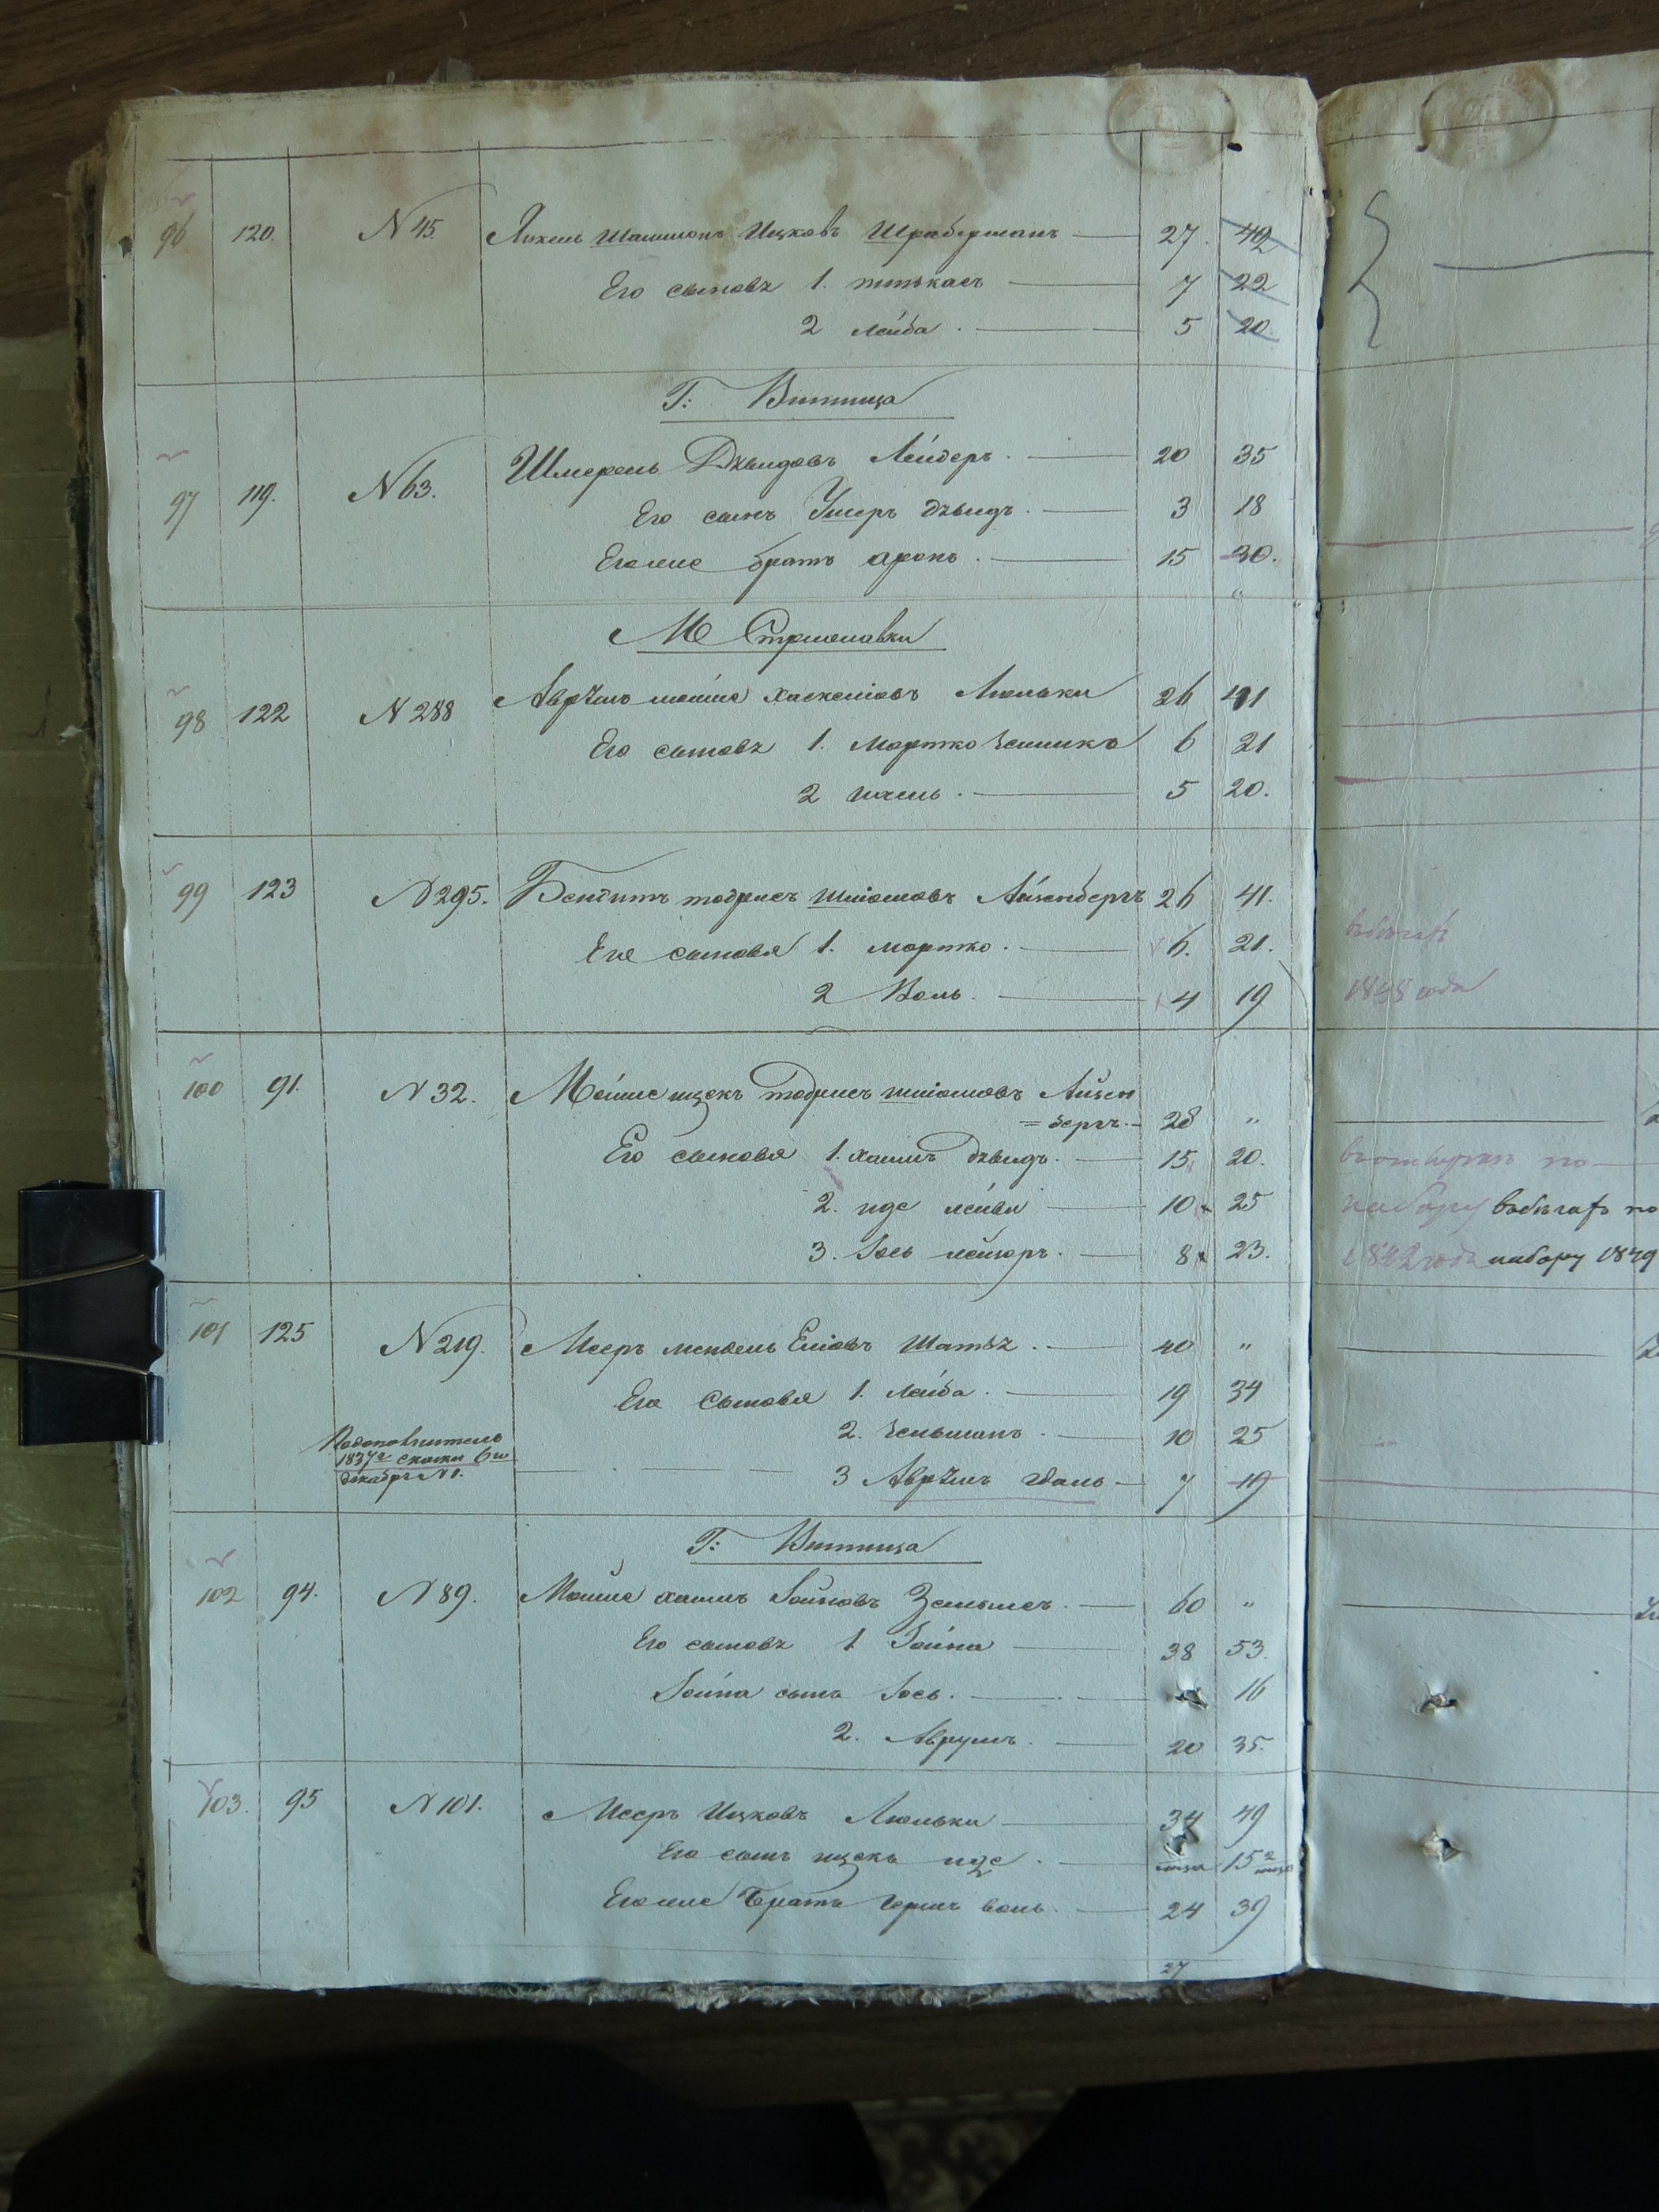 96 120. N 45. Янкель Шлиомъ Ицковъ Шраберманъ 27. 42
Его сыновъя 1. пинькасъ 7 22
2 лейба 5 20
Г: Винница
97 119. N 63. Шмерель Дувидовъ Лейдеръ 20 35
Его сынъ Ушеръ дувидъ 3 18
Егоже братъ аронъ 15 30.
М Стрижовки
98 122 N 288 Аврумъ мойше хаскелiовъ Люльки 26 41
Его сыновъя 1. мортко зельикъ 6 21
2 ихель 5 20.
99 123 N 295. Бендитъ тодрисъ шлiомовъ Айзенбергъ 26 41.
Его сыновья 1. мортко 6. 21.
2 Воль. 4 19
въ бѣгахъ
1848 года
100 91. N 32. Мойше ицекъ Тодрисъ шлiомовъ Айзен
= бергъ. 28 „
Его сыновья 1. хаимъ дувидъ. 15. 20.
2. иде лейви 10 25
3. Iось лейзоръ. 8 23.
по
набору въ бѣгахъ по
1842 года набору 1849
101 125 N 219. Мееръ мендель Елiовъ Шатъя. 40 „
Его Сыновья 1. лейба 19 34
2. зельманъ 10 25
По дополнительно
1837г сказки 6го
декабря N 1. 3 Аврумъ гдаль 7 19
Г: Винница
102 94. N 89. Мойше хаимъ Iойновъ Зельцеръ 60 „
Его сыновъя 1 Iойна 38 53.
Iойна сынъ Iось. 16
2. Аврумъ. 20 35.
103. 95 N 101. Мееръ Ицковъ Люльки 34 49
Его сынъ ицекъ иде 15 2
Егоже Братъ Гершъ воль 24 39
27